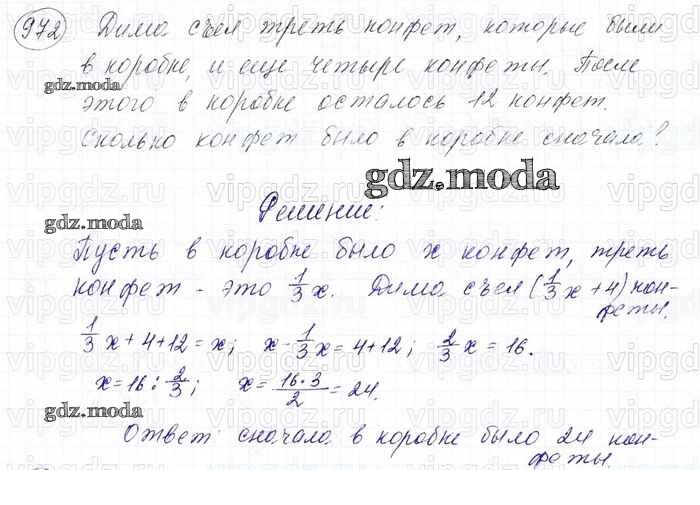 972) Дима съел треть конфет, которые были
в коробке, и еще четыре конфеты. После
gdz.moda
этого в коробке осталось 12 конфет.
Сколько конфет было в коробке сначала?
gdz.moda
gdz.moda
Решение:
Пусть в коробке было x конфет, треть
конфет - это 1/3 x. Дима съел (1/3 x + 4) кон-
феты.
1/3 x + 4 + 12 = x; x - 1/3 x = 4 + 12; 2/3 x = 16.
x = 16 : 2/3; x = 16·3/2 = 24.
gdz.moda
Ответ: сначала в коробке было 24 кон-
феты.